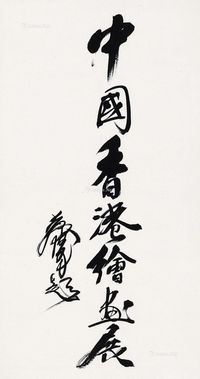 中國香港繪畫展